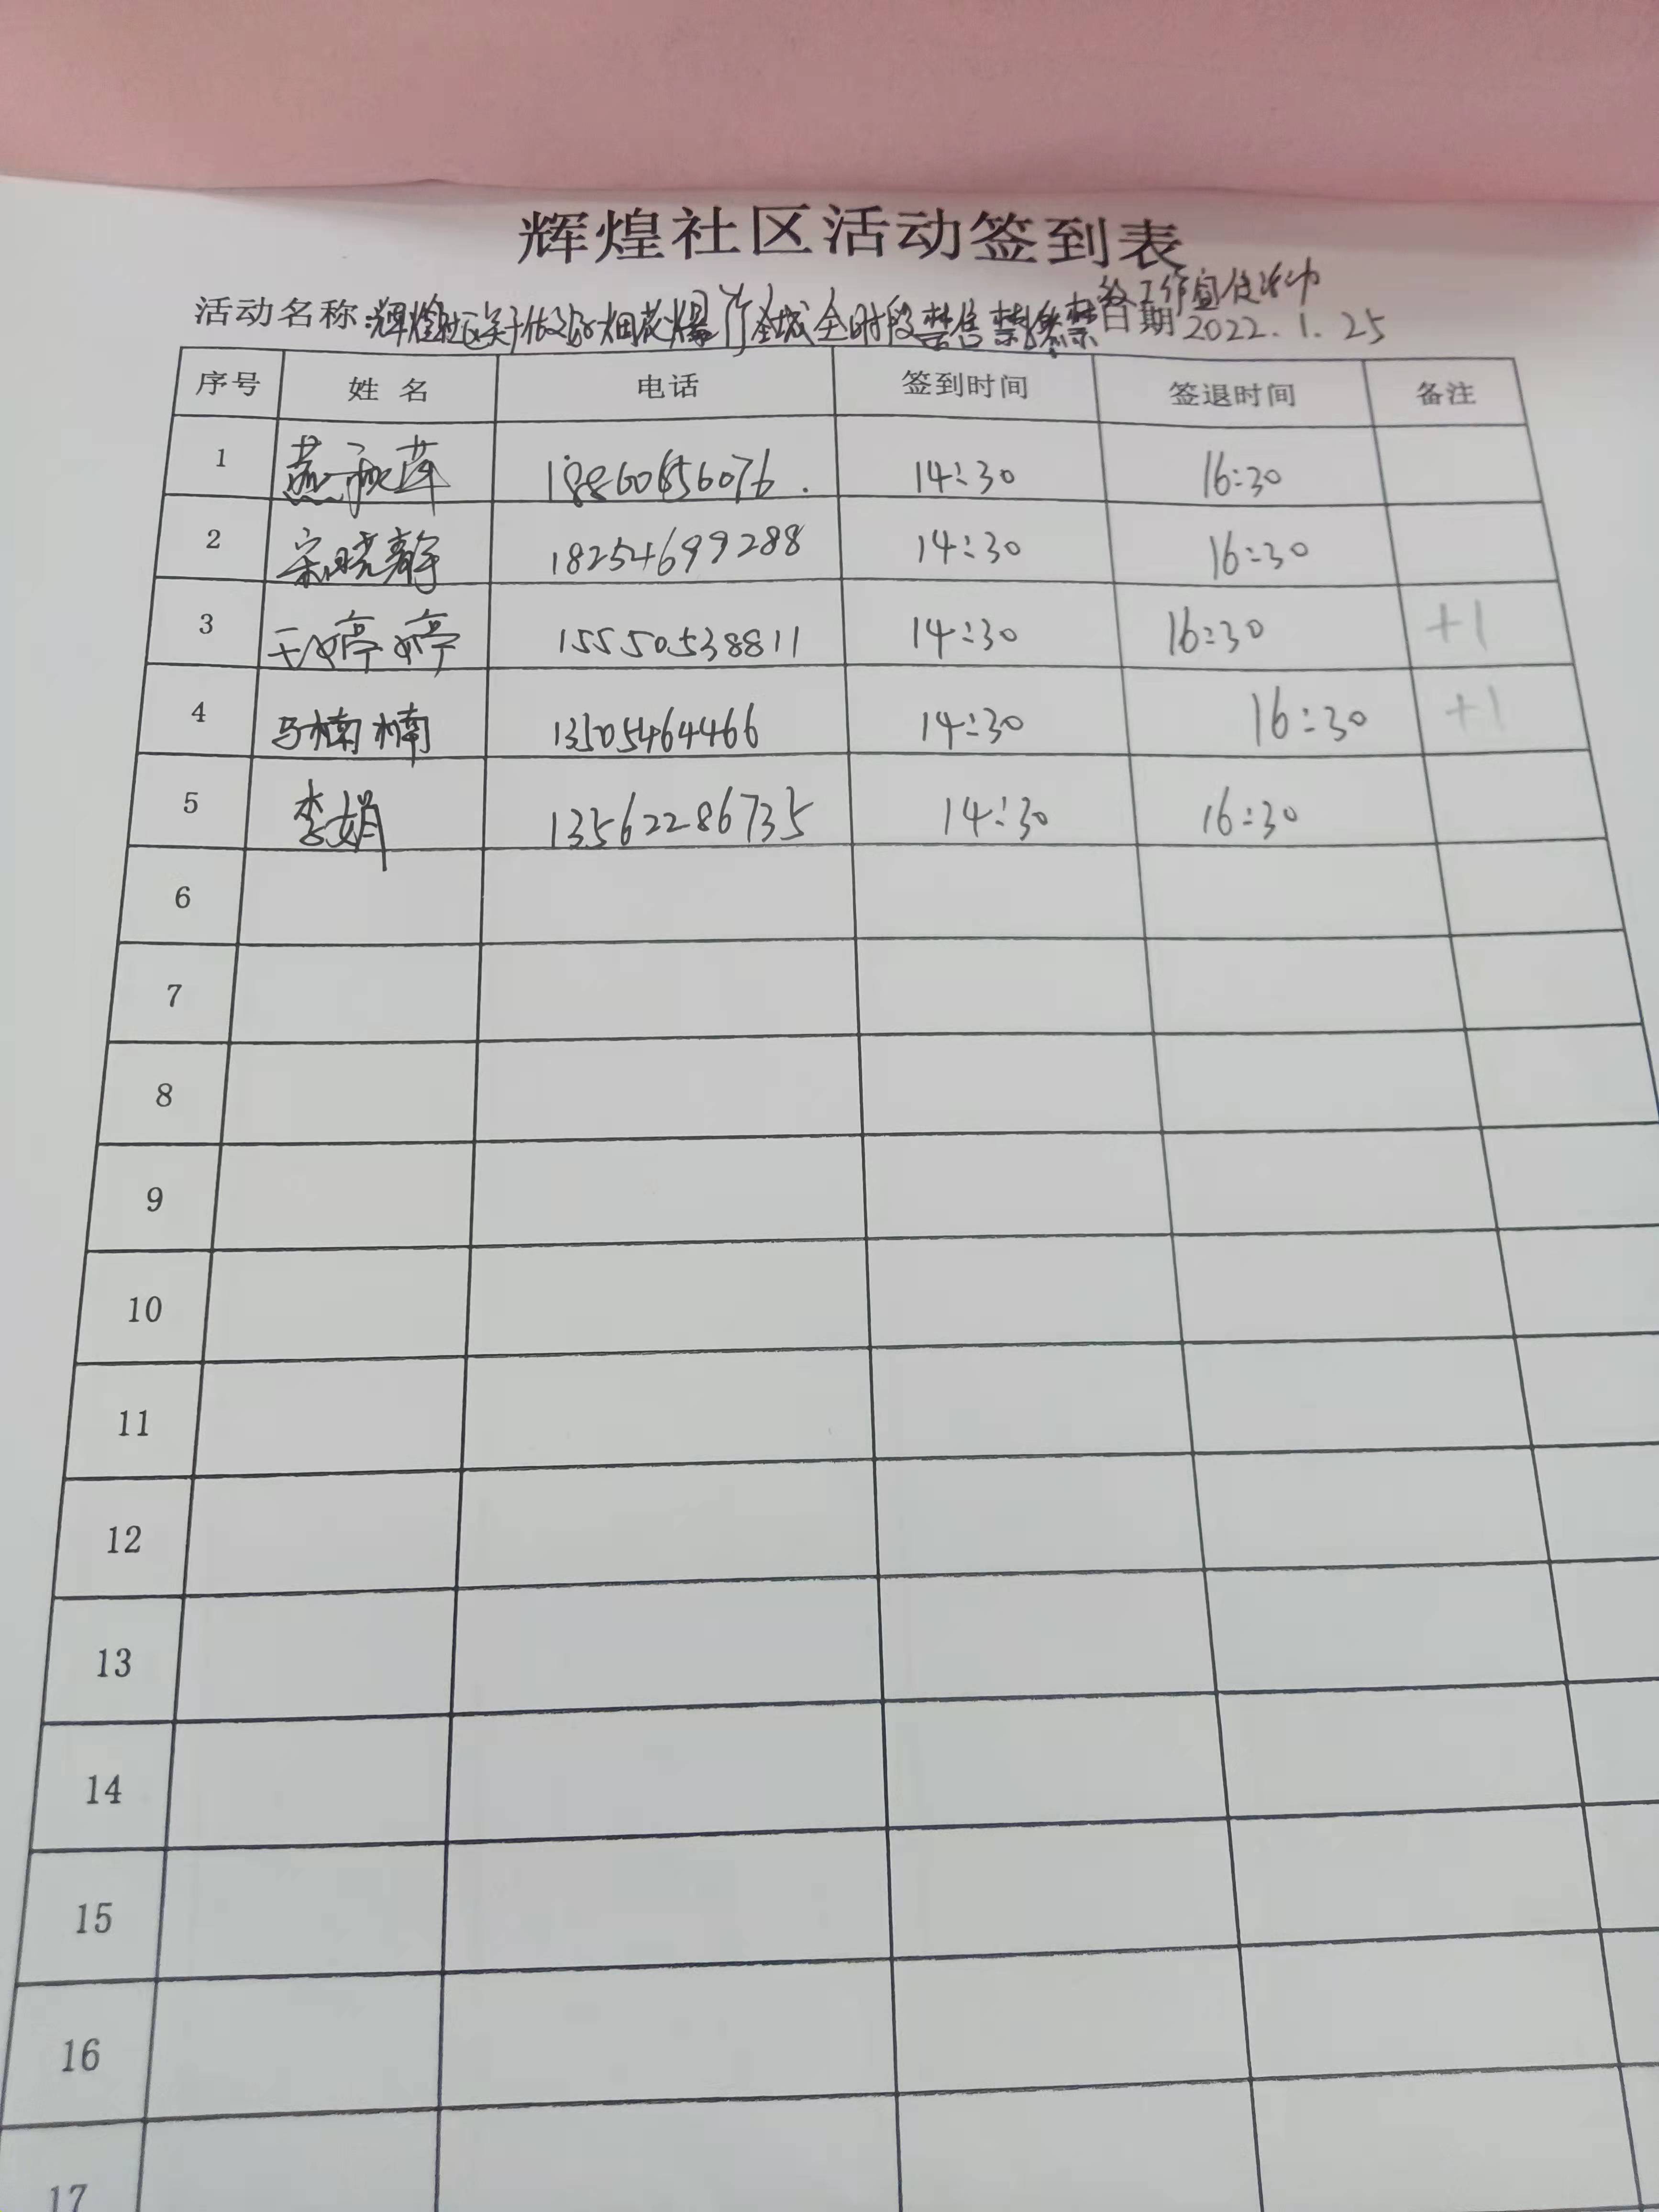 辉煌社区活动签到表
放工作宣传活动
活动名称:辉煌社区关于做好烟花爆竹全城全时段禁售禁燃禁 日期 2022.1.25
序号 姓名 电话 签到时间 签退时间 备注
1 燕秋苹 18860656076. 14:30 16:30
2 宋晓静 18254699288 14:30 16:30
3 王婷婷 15550538811 14:30 16:30 +1
4 马楠楠 13505464466 14:30 16:30 +1
5 李娟 13562286735 14:30 16:30
6
7
8
9
10
11
12
13
14
15
16
17